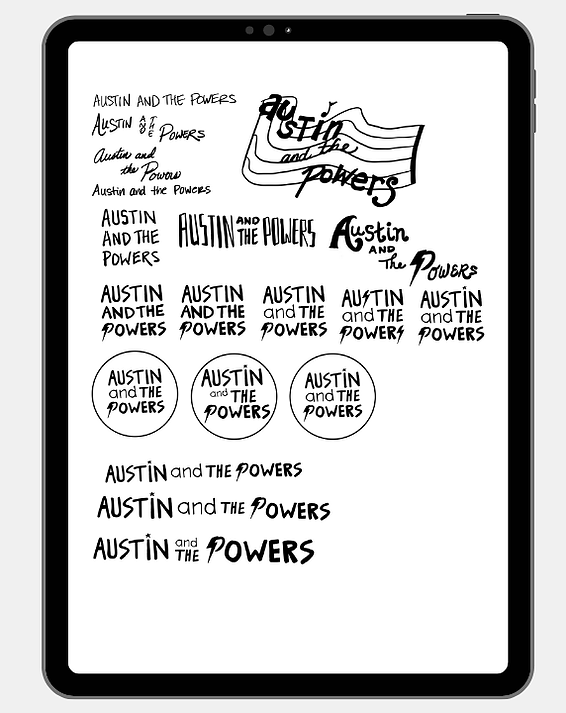 AUSTIN AND THE POWERS
AUSTIN AND THE POWERS
Austin and
the Powers
Austin and the Powers
austin
and the
Powers
AUSTIN
AND THE
POWERS
AUSTIN AND THE POWERS
Austin
AND
The POWERS
AUSTIN
AND THE
POWERS
AUSTIN
AND THE
POWERS
AUSTIN
and THE
POWERS
AUSTIN
and THE
POWERS
AUSTiN
and THE
POWERS
AUSTIN
and THE
POWERS
AUSTiN
and THE
POWERS
AUSTiN
and THE
POWERS
AUSTiN and THE POWERS
AUSTiN and THE POWERS
AUSTiN and THE POWERS